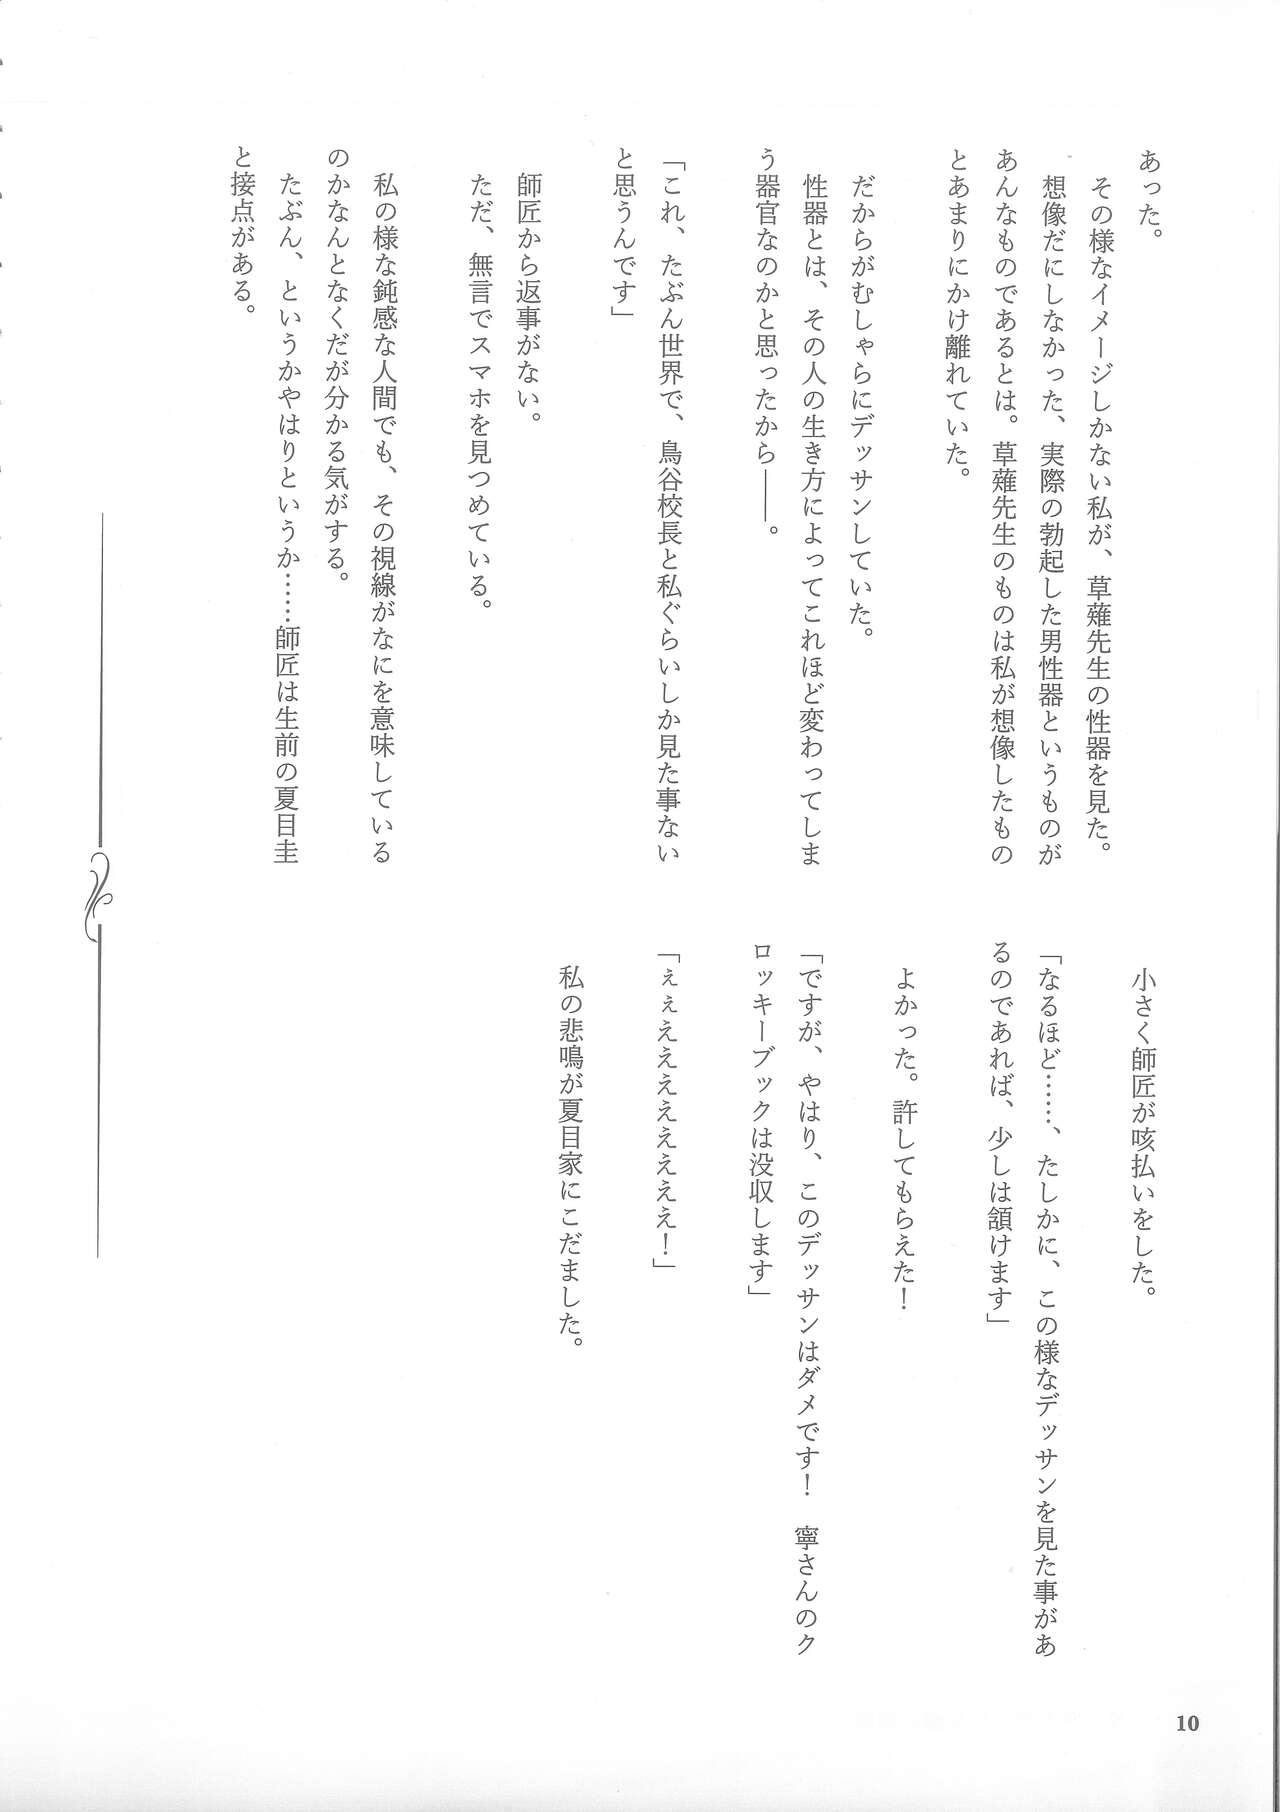 あった。
その様なイメージしかない私が、草薙先生の性器を見た。
想像だにしなかった、実際の勃起した男性器というものが
あんなものであるとは。草薙先生のものは私が想像したもの
とあまりにかけ離れていた。
だからがむしゃらにデッサンしていた。
性器とは、その人の生き方によってこれほど変わってしま
う器官なのかと思ったから――。
「これ、たぶん世界で、鳥谷校長と私ぐらいしか見た事ない
と思うんです」
師匠から返事がない。
ただ、無言でスマホを見つめている。
私の様な鈍感な人間でも、その視線がなにを意味している
のかなんとなくだが分かる気がする。
たぶん、というかやはりというか……師匠は生前の夏目圭
と接点がある。
小さく師匠が咳払いをした。
「なるほど……、たしかに、この様なデッサンを見た事があ
るのであれば、少しは頷けます」
よかった。許してもらえた！
「ですが、やはり、このデッサンはダメです！　寧さんのク
ロッキーブックは没収します」
「ぇぇえええええええ！」
私の悲鳴が夏目家にこだました。
10